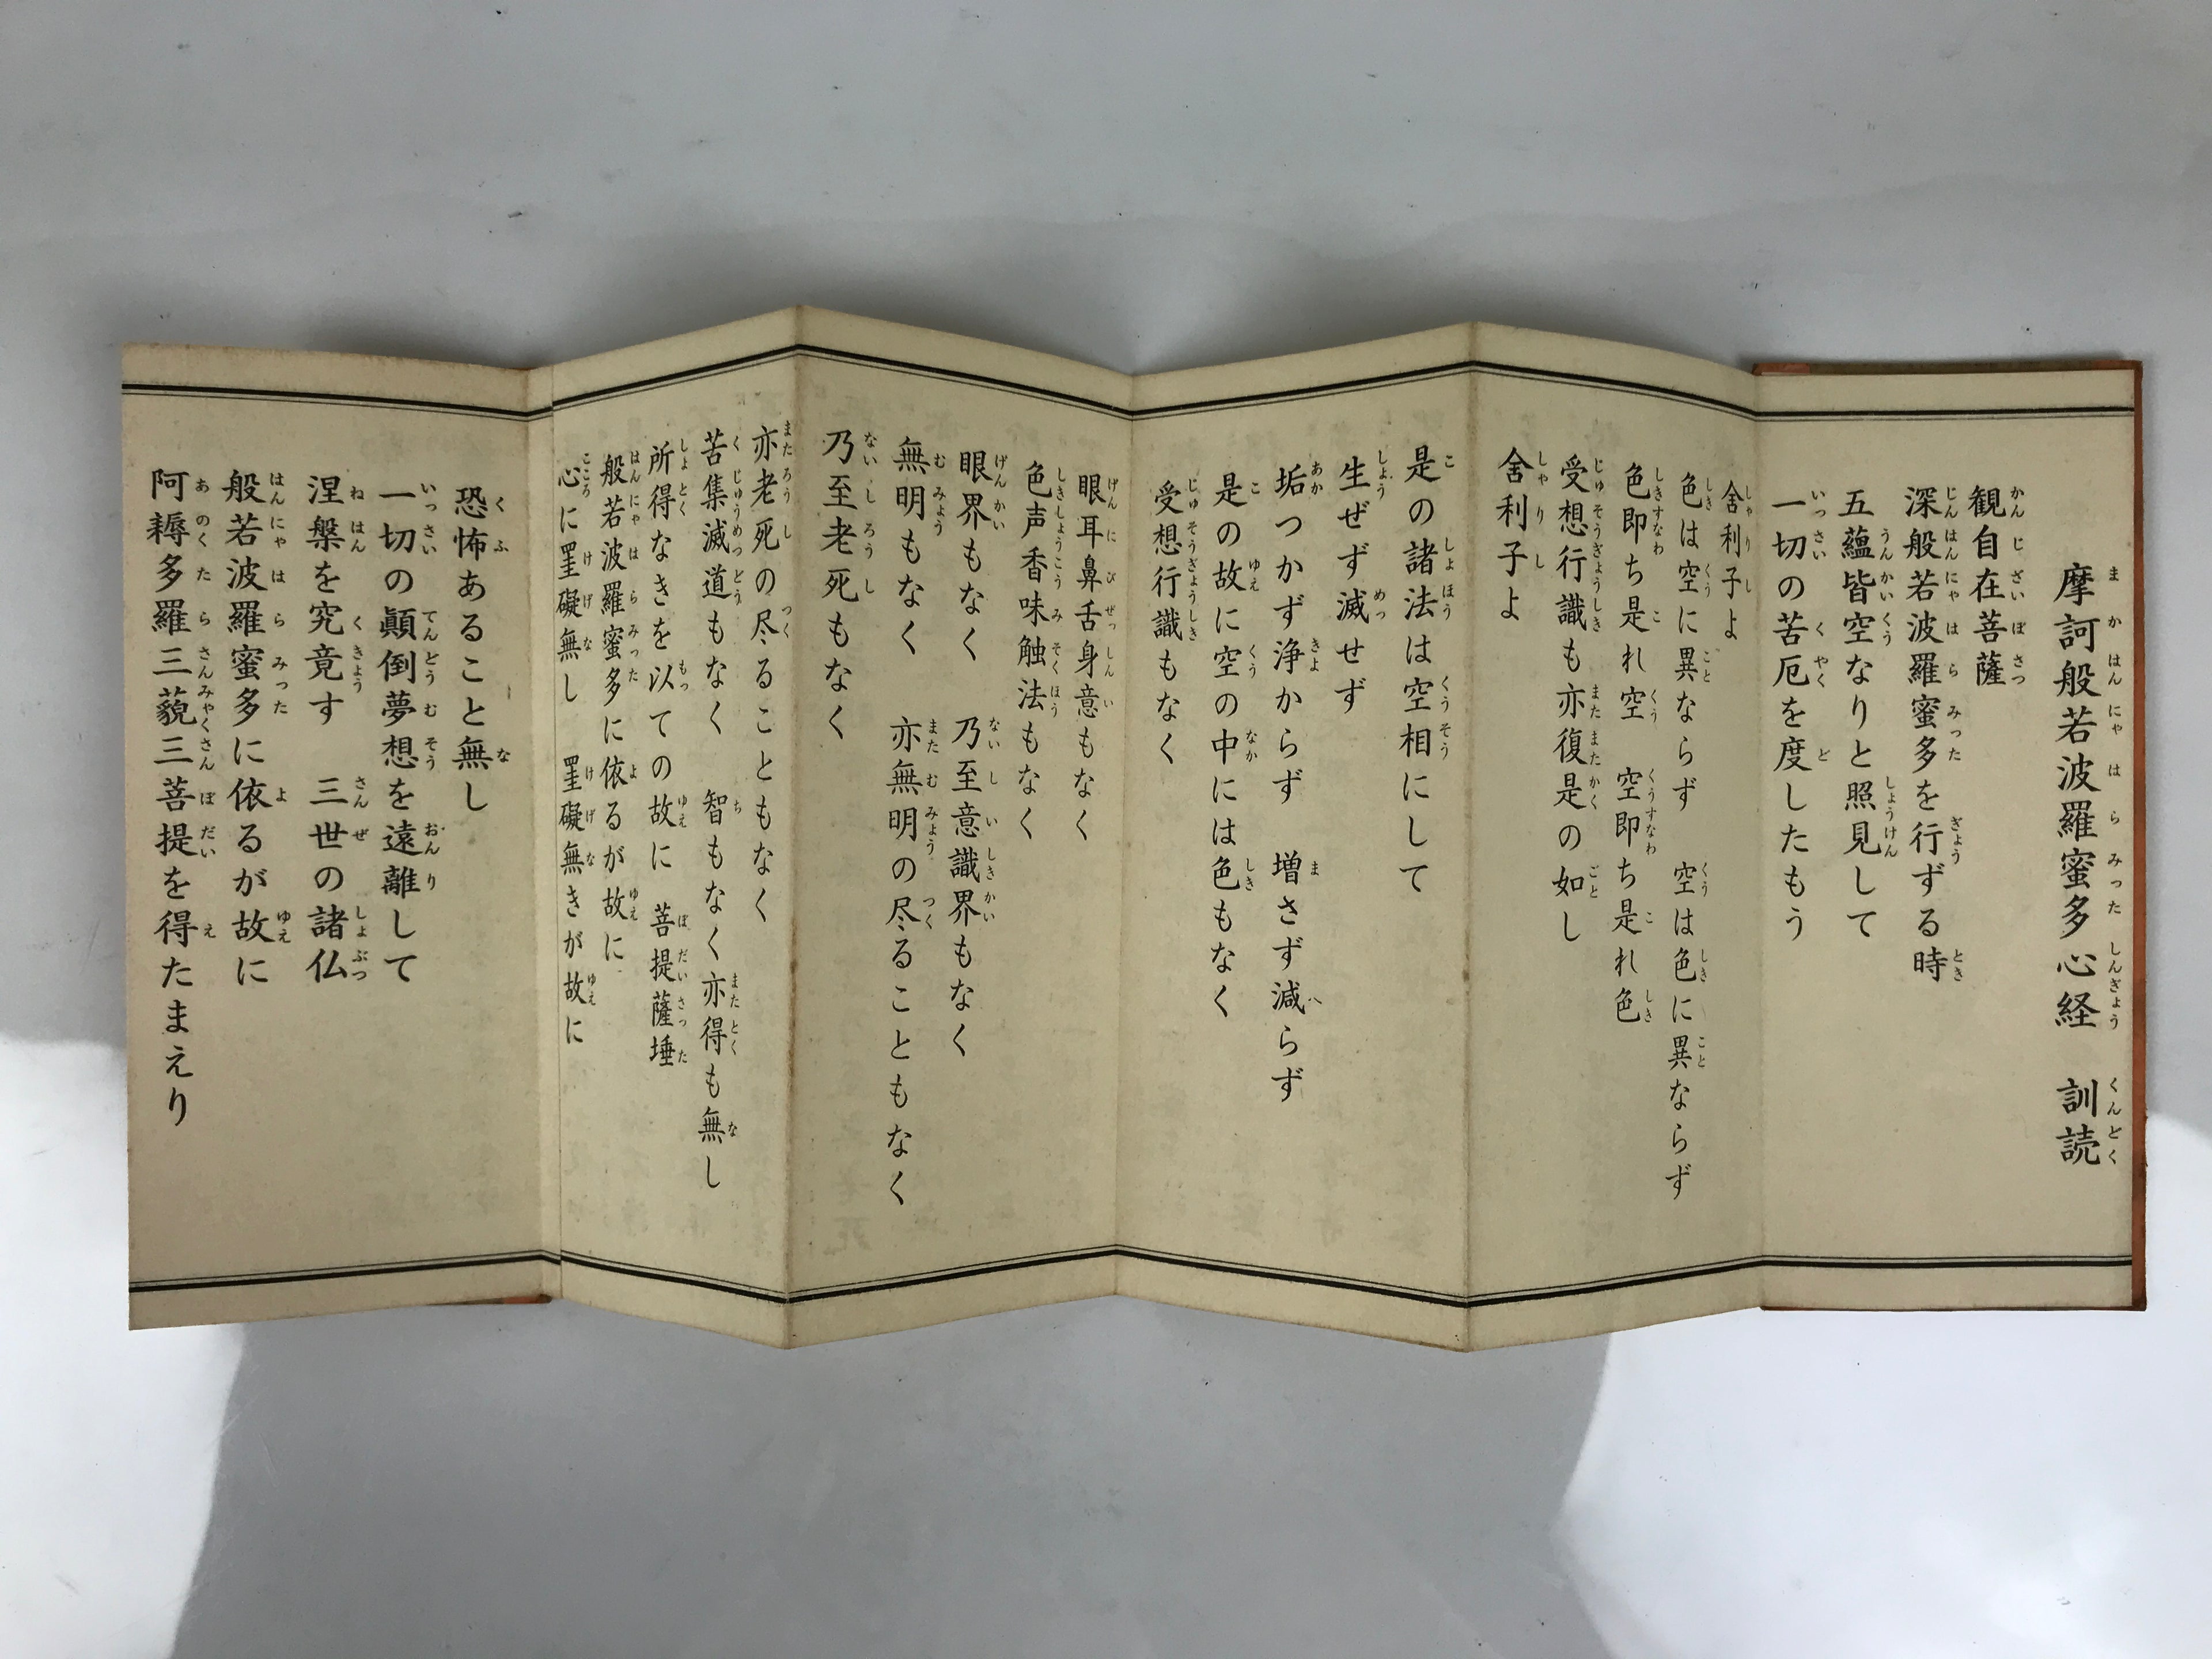 摩訶般若波羅蜜多心経　訓読
観自在菩薩
深般若波羅蜜多を行ずる時
五蘊皆空なりと照見して
一切の苦厄を度したもう
舎利子よ
色は空に異ならず　空は色に異ならず
色即ち是れ空　空即ち是れ色
受想行識も亦復是の如し
舎利子よ
是の諸法は空相にして
生ぜず滅せず
垢つかず浄からず　増さず減らず
是の故に空の中には色もなく
受想行識もなく
眼耳鼻舌身意もなく
色声香味触法もなく
眼界もなく　乃至意識界もなく
無明もなく　亦無明の尽ることもなく
乃至老死もなく
亦老死の尽ることもなく
苦集滅道もなく　智もなく亦得も無し
所得なきを以ての故に　菩提薩埵
般若波羅蜜多に依るが故に
心に罣礙無し　罣礙無きが故に
恐怖あること無し
一切の顛倒夢想を遠離して
涅槃を究竟す　三世の諸仏
般若波羅蜜多に依るが故に
阿耨多羅三藐三菩提を得たまえり